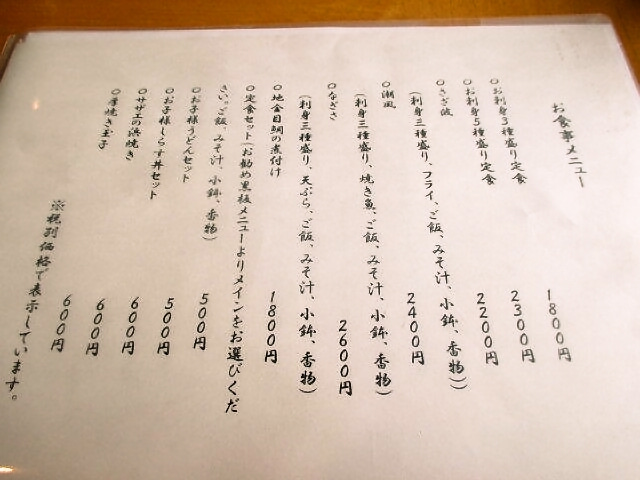 お食事メニュー
○お刺身3種盛り定食 1800円
○お刺身5種盛り定食 2300円
○さざ波 2200円
(刺身三種盛り、フライ、ご飯、みそ汁、小鉢、香物))
○潮風 2400円
(刺身三種盛り、焼き魚、ご飯、みそ汁、小鉢、香物)
○なぎさ 2600円
(刺身三種盛り、天ぷら、ご飯、みそ汁、小鉢、香物)
○地金目鯛の煮付け 1800円
○定食セット(お勧め黒板メニューよりメインをお選びくだ
さい。ご飯、みそ汁、小鉢、香物) 500円
○お子様うどんセット 500円
○お子様しらす丼セット 600円
○サザエの浜焼き 600円
○厚焼き玉子 600円
※税別価格で表示しています。